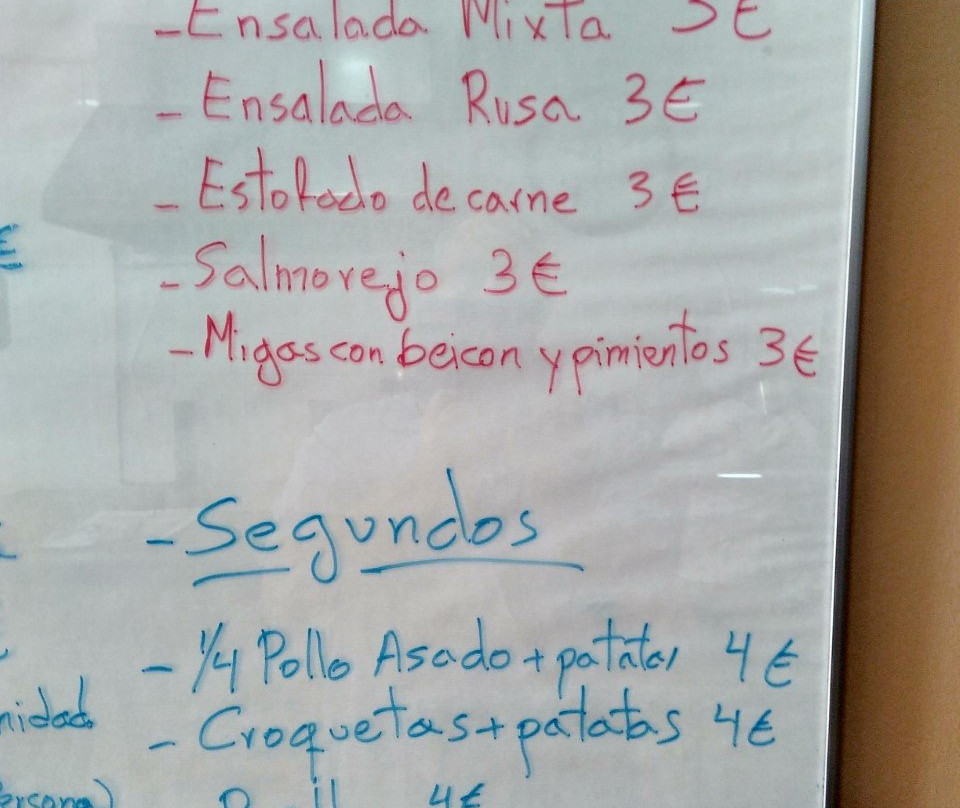 -Ensalada Mixta 3€
- Ensalada Rusa 3€
- Estofado de carne 3€
€
- Salmorejo 3€
- Migas con beicon y pimientos 3€
- Segundos
- 1/4 Pollo Asado + patatas 4€
nidad
- Croquetas + patatas 4€
ersona)
4€